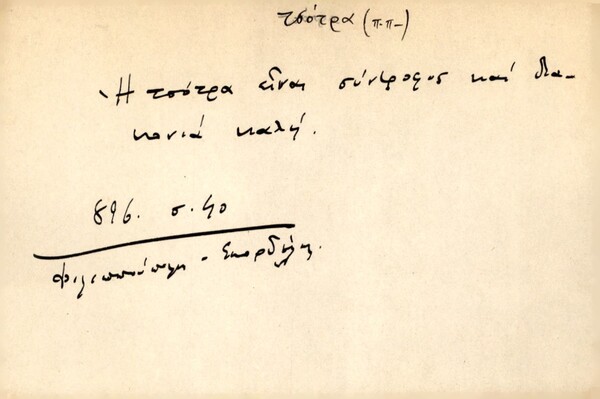 τσότρα (π.π-)
Ἡ τσότρα εἶναι σύντροφος καί δια-
κονιά καλή.
896. σ. 40
Φιλιππούπολη - Σκορδέλης.